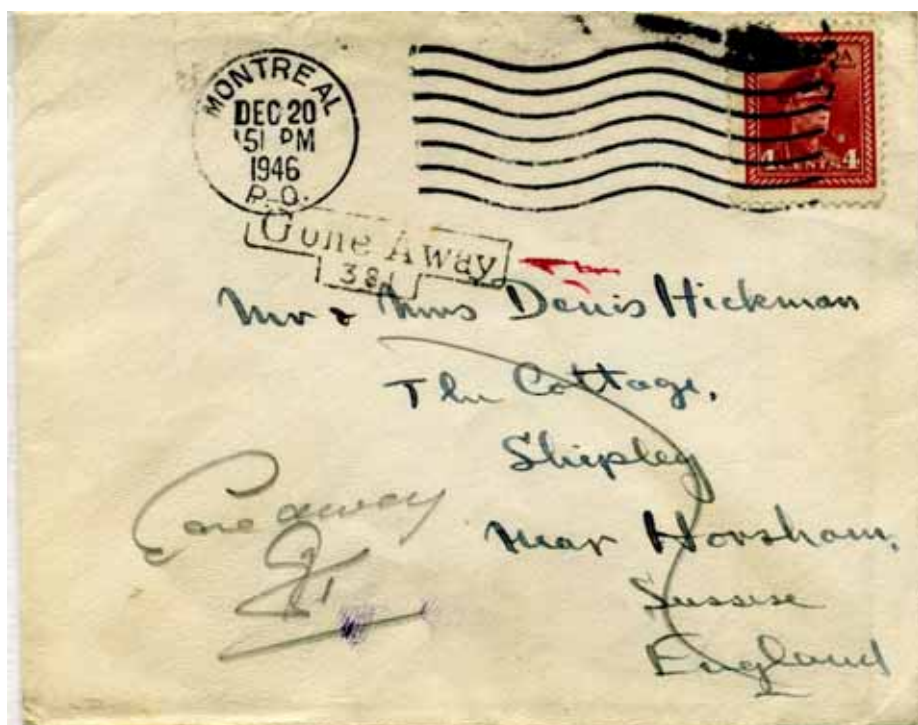 MONTREAL
DEC 20
51 PM
1946
P.Q.
4 CENTS 4
Gone Away
381
Mr & Mrs Denis Hickman
The Cottage,
Shipley
Near Horsham,
Sussex
England
Gone away